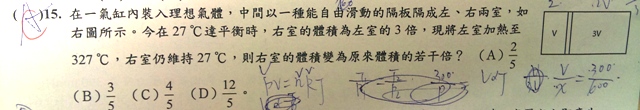 ( )15. 在一氣缸內裝入理想氣體,中間以一種能自由滑動的隔板隔成左、右兩室,如
右圖所示。今在 27 ℃達平衡時,右室的體積為左室的 3 倍,現將左室加熱至
327 ℃,右室仍維持 27 ℃,則右室的體積變為原來體積的若干倍? (A) 2/5
(B) 3/5 (C) 4/5 (D) 12/5。
V 3V
PV=nRT V∝T V/x = 300/600